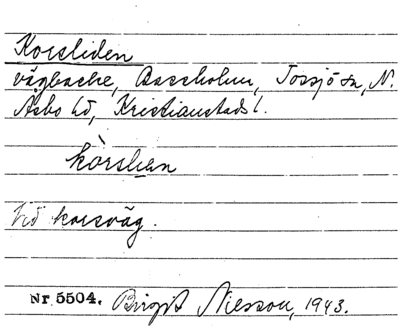 Korsliden
vägbacke, Basseholm, Torsjö sn, N.
Åsbo hd, Kristianstads l.
kòrslien
Vid korsväg.
Nr 5504. Birgit Nilsson, 1943.